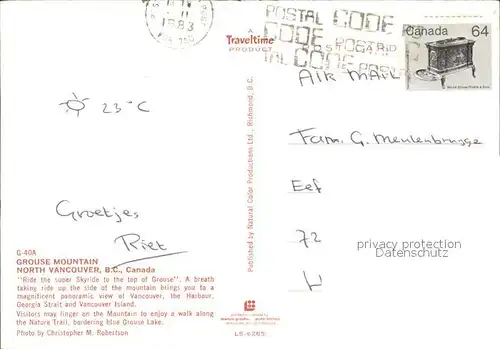 1983
POSTAL CODE
CODE POSTAL
Canada 64
A
Traveltime
PRODUCT
AIR MAIL
23 °C
Fam. G. Meulenbrugge
Eef
72
Groetjes
Riet
privacy protection
Datenschutz
Published by Natural Color Productions Ltd., Richmond, B.C.
G-40A
GROUSE MOUNTAIN
NORTH VANCOUVER, B.C., Canada
"Ride the super Skyride to the top of Grouse". A breath
taking ride up the side of the mountain brings you to a
magnificent panoramic view of Vancouver, the Harbour,
Georgia Strait and Vancouver Island.
Visitors may linger on the Mountain to enjoy a walk along
the Nature Trail, bordering Blue Grouse Lake.
Photo by Christopher M. Robertson